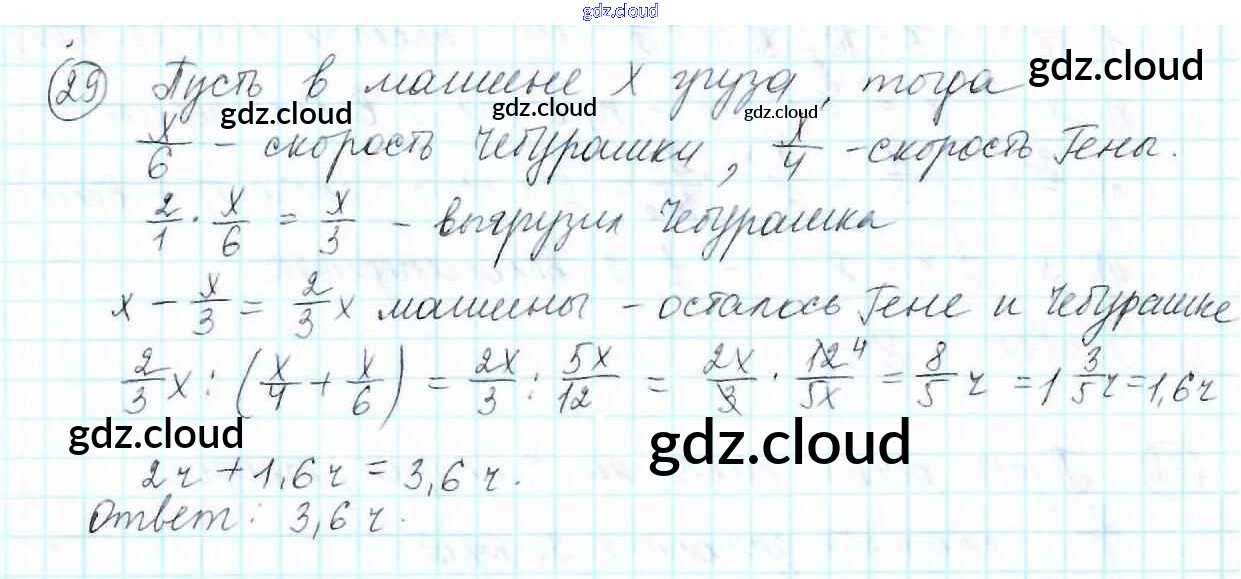 gdz.cloud
29 Пусть в машине x груза, тогда gdz.cloud
gdz.cloud gdz.cloud gdz.cloud
x/6 - скорость Чебурашки, x/4 - скорость Гены.
2/1 · x/6 = x/3 - выгрузил Чебурашка
x - x/3 = 2/3 x машины - осталось Гене и Чебурашке
2/3 x : (x/4 + x/6) = 2x/3 : 5x/12 = 2x/3 · 12 4/5x = 8/5 ч = 1 3/5 ч = 1,6 ч
gdz.cloud gdz.cloud
2ч + 1,6ч = 3,6 ч.
Ответ: 3,6 ч.